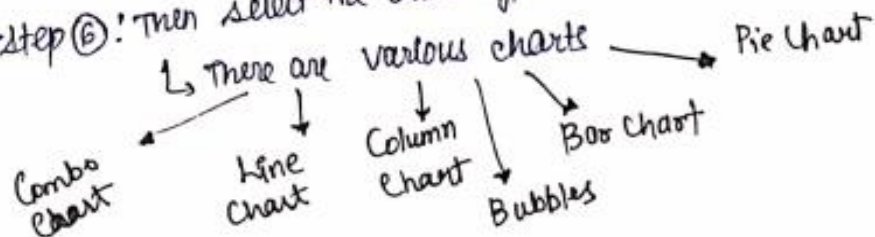 Step ⑥: Then select
↳ There are various charts
Pie Chart
Combo Chart
Line Chart
Column Chart
Bubbles
Bar Chart